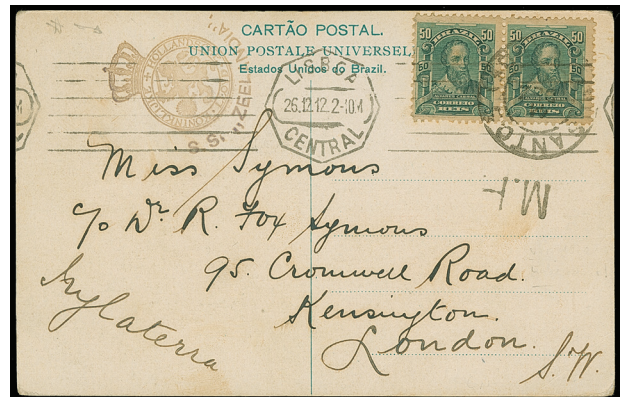 CARTÃO POSTAL.
UNION POSTALE UNIVERSELLE
Estados Unidos do Brazil.
S.S. "ZEELANDIA"
LISBOA
26.12.12.2-10.M
CENTRAL
50 BRAZIL 50
CORREIO
REIS
50 BRAZIL 50
CORREIO
REIS
SANTOS
M.F
Miss Symons
c/o Dr. R. Fox Symons
95. Cromwell Road.
Kensington.
London.
S.W.
Inglaterra